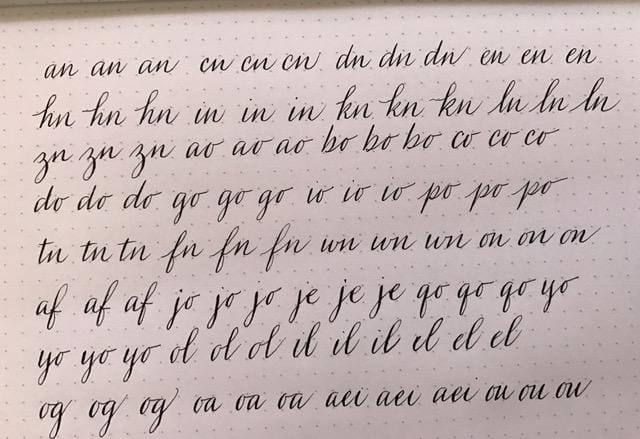 an an an cn cn cn dn dn dn en en en
hn hn hn in in in kn kn kn ln ln ln
zn zn zn ao ao ao bo bo bo co co co
do do do go go go io io io po po po
tn tn tn fn fn fn wn wn wn on on on
af af af jo jo jo je je je qo qo qo yo
yo yo yo ol ol ol il il il el el el
og og og oa oa oa aei aei aei ou ou ou